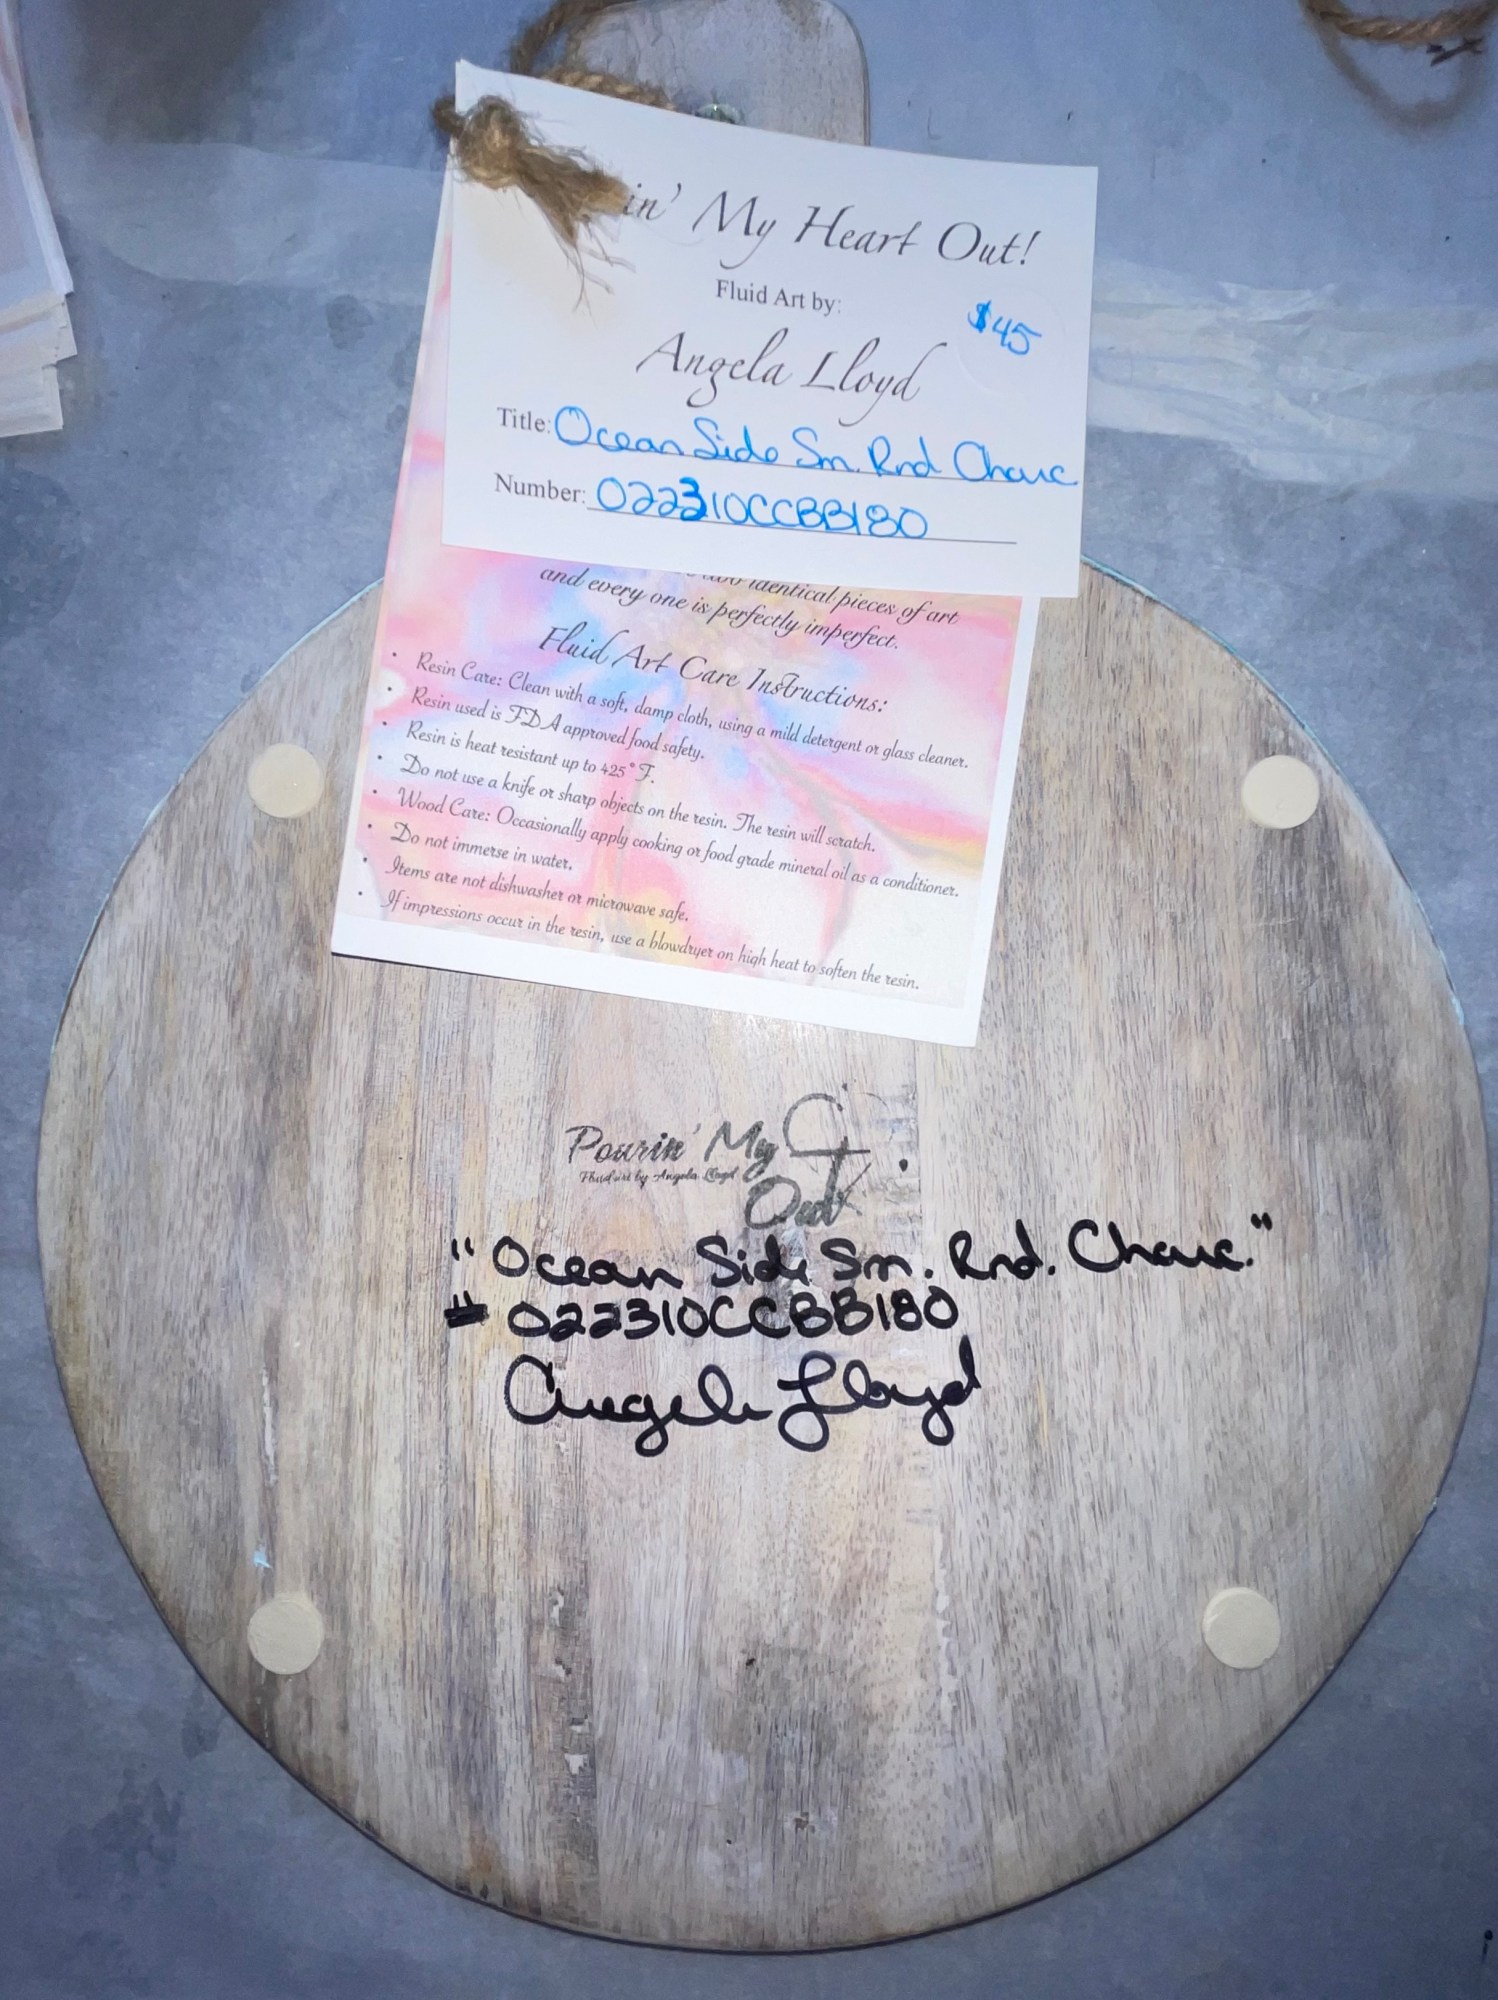 in' My Heart Out!
Fluid Art by:
$45
Angela Lloyd
Title: Ocean Side Sm. Rnd Charc
Number: 022310CCBB180
two identical pieces of art
and every one is perfectly imperfect.
Fluid Art Care Instructions:
• Resin Care: Clean with a soft, damp cloth, using a mild detergent or glass cleaner.
• Resin used is FDA approved food safety.
• Resin is heat resistant up to 425° F.
• Do not use a knife or sharp objects on the resin. The resin will scratch.
• Wood Care: Occasionally apply cooking or food grade mineral oil as a conditioner.
• Do not immerse in water.
• Items are not dishwasher or microwave safe.
• If impressions occur in the resin, use a blowdryer on high heat to soften the resin.
Pourin' My
Fluid art by Angela Lloyd
Out
"Ocean Side Sm. Rnd. Charc."
# 022310CCBB180
Angela Lloyd